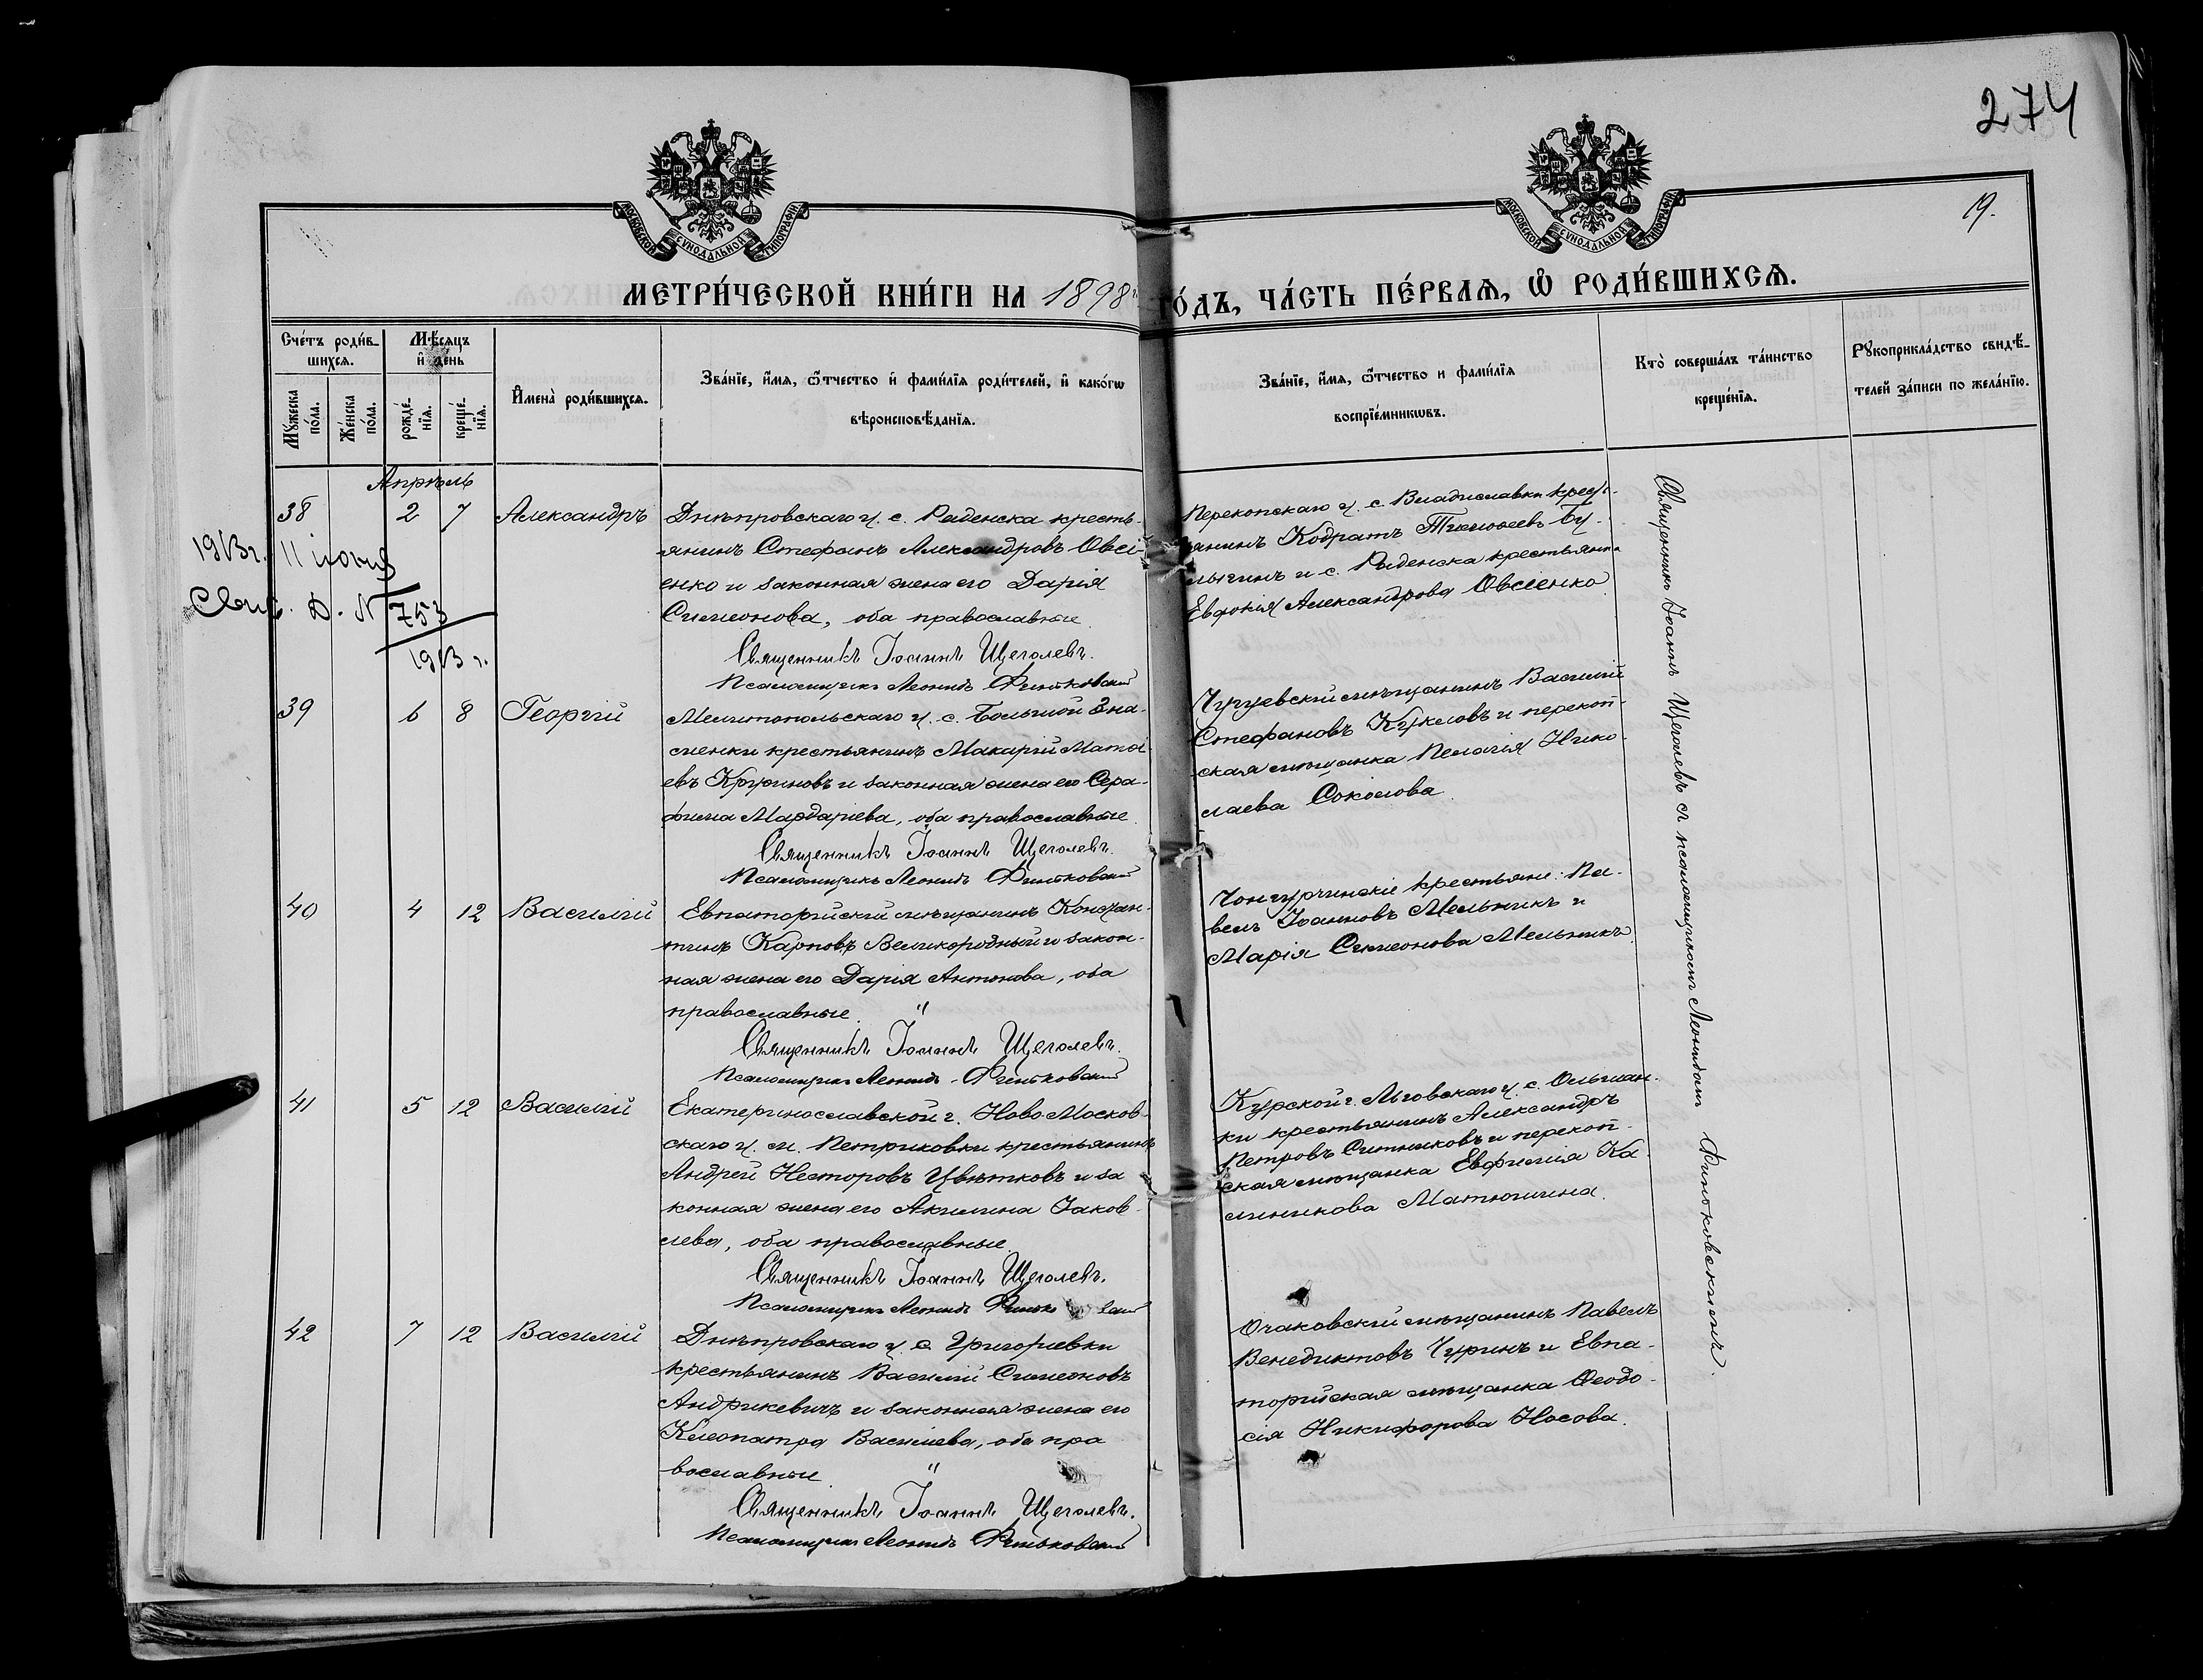 274
19.
МОСКОВСКОЙ СѴНОДАЛЬНОЙ ТИПОГРАФІИ
МОСКОВСКОЙ СѴНОДАЛЬНОЙ ТИПОГРАФІИ
МЕТРИ́ЧЕСКОЙ КНИ́ГИ НА 1898 ГО́ДЪ, ЧА́СТЬ ПЕ́РВАѦ, Ѡ҆ РОДИ́ВШИХСѦ.
Сче́тъ роди́в-
шихсѧ.
Мꙋ́жеска по́ла.
Же́нска по́ла.
Мѣ́сѧцъ
и҆ де́нь
рожде́-
нїѧ.
креще́-
нїѧ.
И҆мена̀ роди́вшихсѧ.
Зва́нїе, и҆́мѧ, ѻ҆́тчество и҆ фами́лїѧ роди́телей, и҆ како́гѡ
вѣроисповѣ́данїѧ.
Зва́нїе, и҆́мѧ, ѻ҆́тчество и фами́лїѧ
воспрїе́мникѡвъ.
Кто̀ соверша́лъ та́инство
креще́нїѧ.
Рꙋкоприкла́дство свидѣ́-
телей за́писи по жела́нїю.
Апрѣль
38 2 7 Александръ
Днѣпровскаго у. с. Раденска кресть-
янинъ Стефанъ Александровъ Овсі-
енко и законная жена его Дарія
Симеонова, оба православные.
Священникъ Іоаннъ Щеголевъ.
Псаломщикъ Леонидъ Финьковскій
Перекопскаго у. с. Владиславки крест-
янинъ Кодратъ Тимоѳеевъ Бу-
лыгинъ и с. Раденска крестьянка
Евдокія Александрова Овсіенко.
1913 г. 11 іюня
Свид. Д. N 753
1913 г.
39 6 8 Георгій
Мелитопольскаго у. с. Большой Зна-
менки крестьянинъ Макарій Матѳі-
евъ Кружновъ и законная жена его Сера-
фима Мардаріева, оба православные.
Священникъ Іоаннъ Щеголевъ.
Псаломщикъ Леонидъ Финьковскій
Чугуевскій мѣщанинъ Василій
Стефановъ Кукловъ и перекоп-
ская мѣщанка Пелагія Нико-
лаева Соколова.
40 4 12 Василій
Евпаторійскій мѣщанинъ Констан-
тинъ Карповъ Великородный и закон-
ная жена его Дарія Антонова, оба
православные. "
Священникъ Іоаннъ Щеголевъ.
Псаломщикъ Леонидъ Финьковскій
Чонгурчинскіе крестьяне: Па-
велъ Іоанновъ Мельникъ и
Марія Симеонова Мельникъ.
41 5 12 Василій
Екатеринославской г. Ново Москов-
скаго у. м. Петриковки крестьянинъ
Андрей Несторовъ Цвѣтковъ и за
конная жена его Акилина Іаков-
лева, оба православные.
Священникъ Іоаннъ Щеголевъ.
Псаломщикъ Леонидъ Финько скій
Курской г. Льговскаго у. с. Ольшан-
ки крестьянинъ Александръ
Петровъ Ситниковъ и перекоп-
ская мѣщанка Евфимія Ка-
линикова Матюшина.
42 7 12 Василій
Днѣпровскаго у. с. Григорьевки
крестьянинъ Василій Симеоновъ
Андрикевичъ и законная жена его
Клеопатра Васильева, оба пра
вославные. "
Священникъ Іоаннъ Щеголевъ.
Псаломщикъ Леонидъ Финьковскій
Очаковскій мѣщанинъ Павелъ
Венедиктовъ Чуринъ и Евпа-
торійская мѣщанка Ѳеодо-
сія Никифорова Носова.
Священникъ Іоаннъ Щеголевъ съ псаломщикомъ Леонидомъ Финьковскимъ.